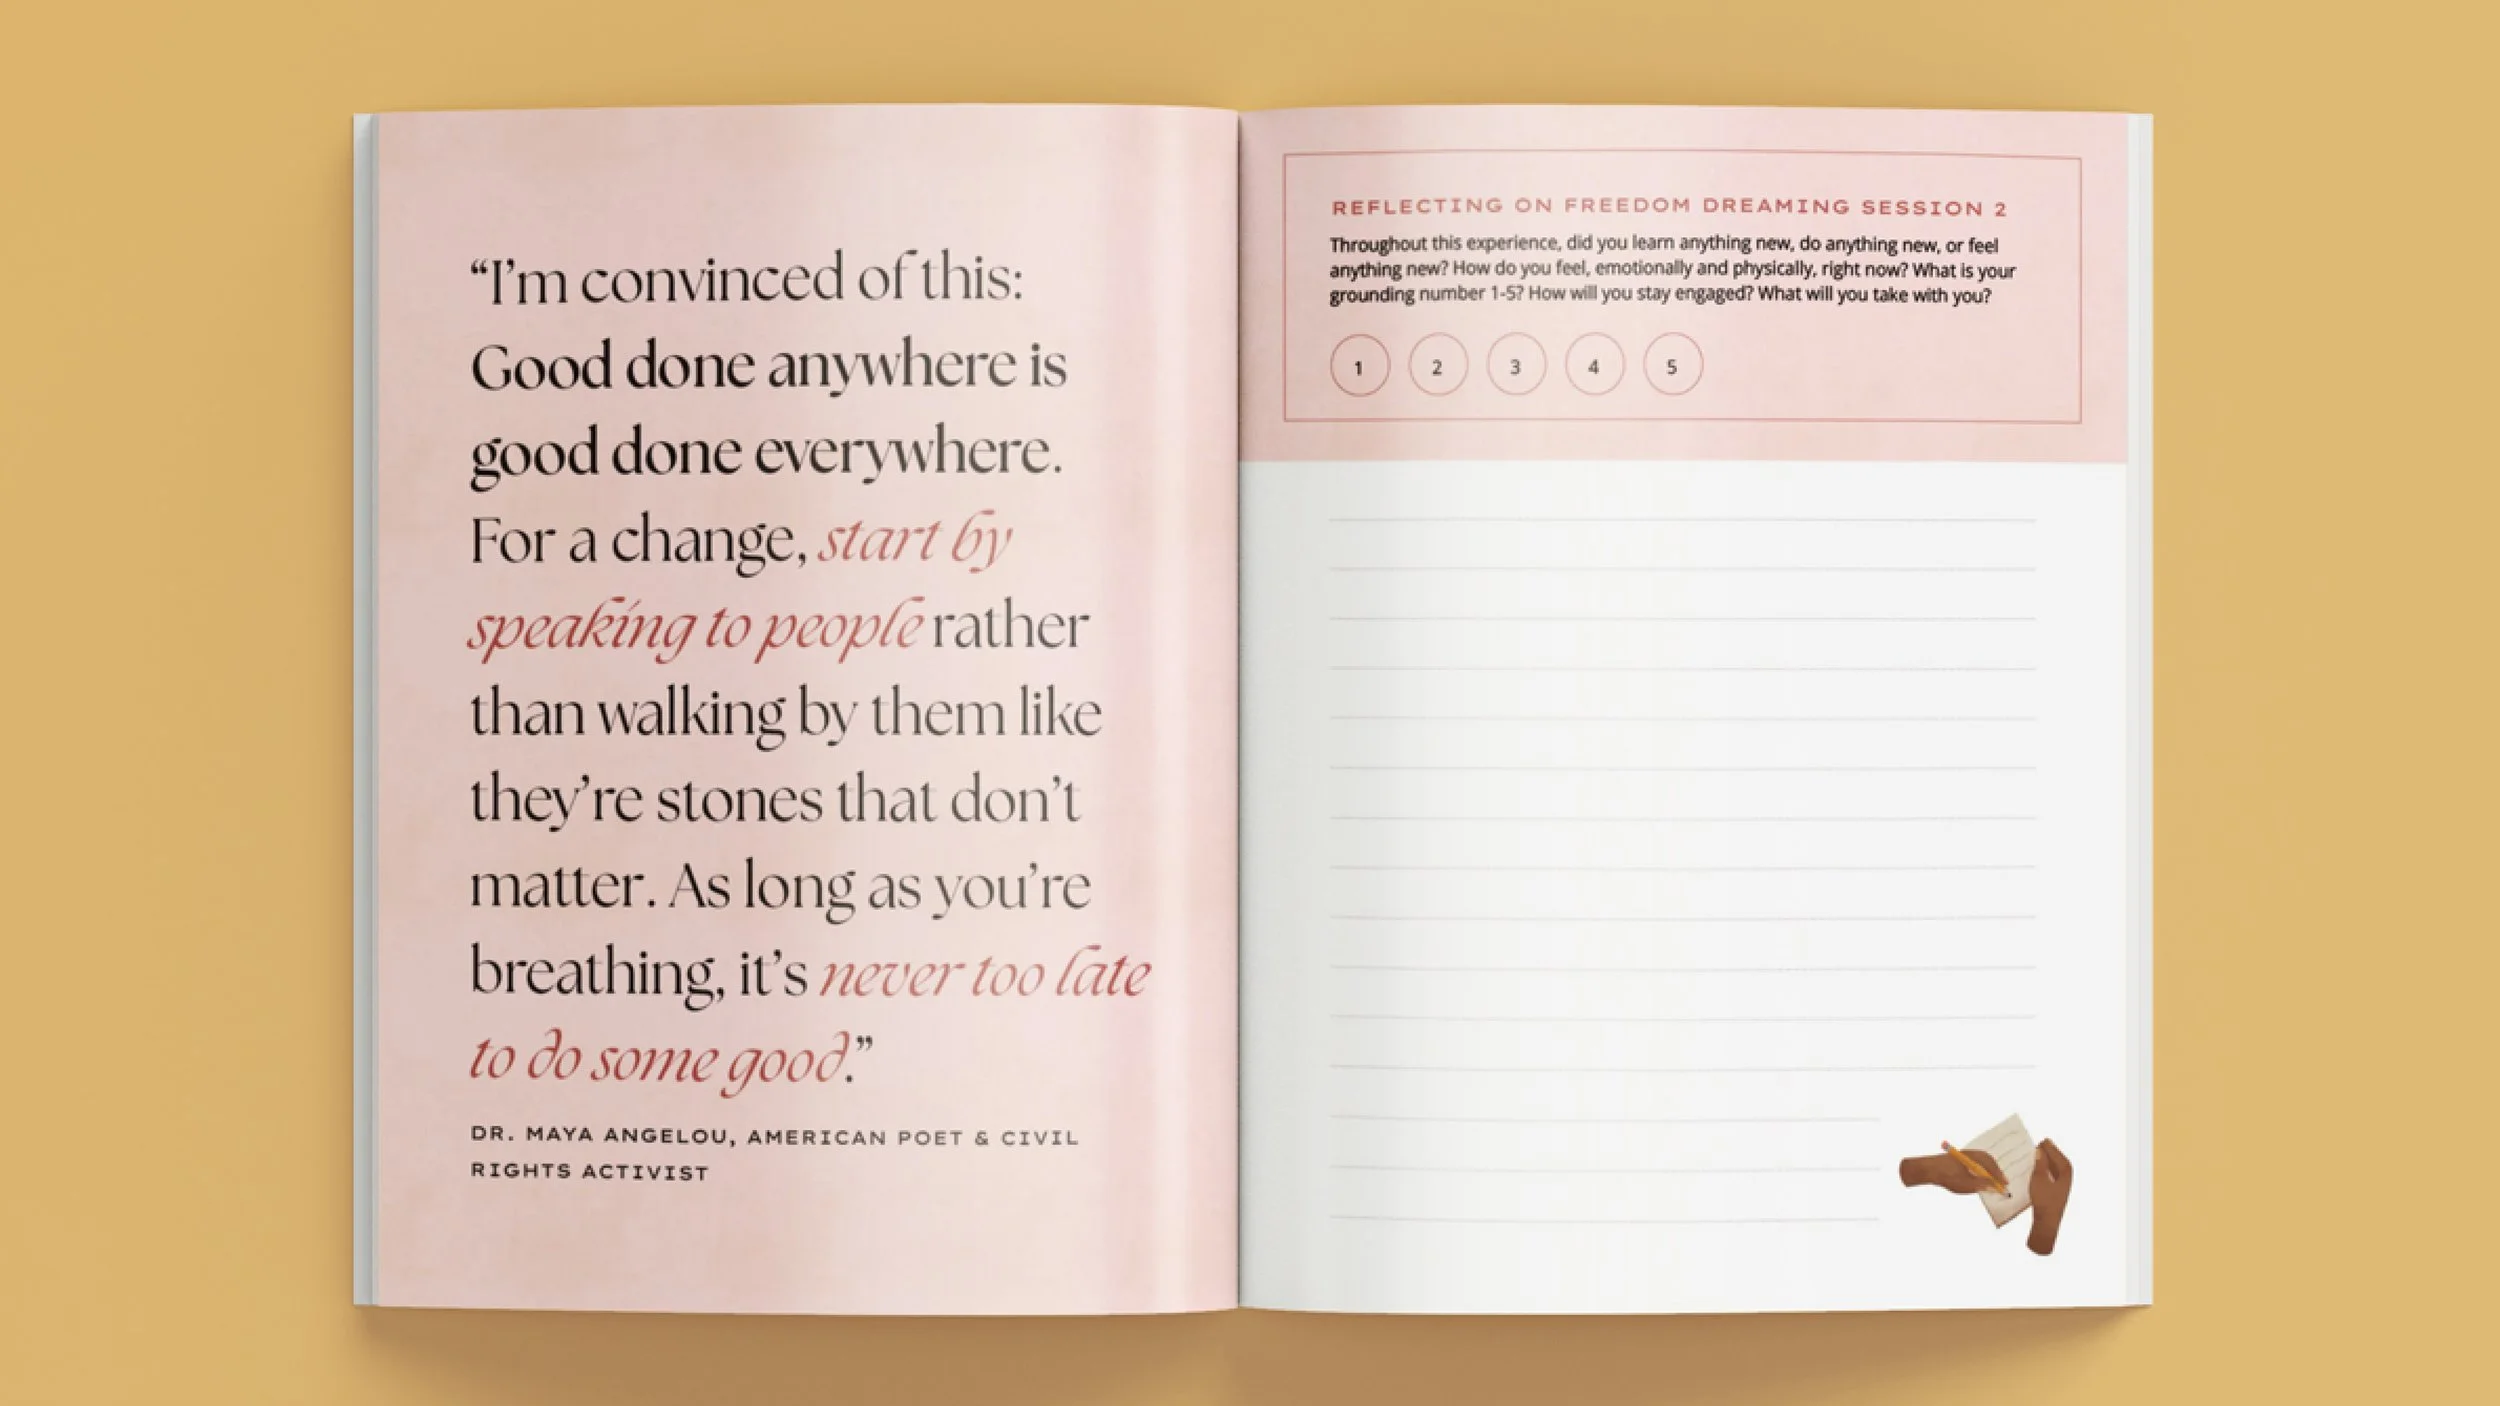 “I’m convinced of this:
Good done anywhere is
good done everywhere.
For a change, start by
speaking to people rather
than walking by them like
they’re stones that don’t
matter. As long as you’re
breathing, it’s never too late
to do some good.”
DR. MAYA ANGELOU, AMERICAN POET & CIVIL
RIGHTS ACTIVIST
REFLECTING ON FREEDOM DREAMING SESSION 2
Throughout this experience, did you learn anything new, do anything new, or feel
anything new? How do you feel, emotionally and physically, right now? What is your
grounding number 1-5? How will you stay engaged? What will you take with you?
1 2 3 4 5